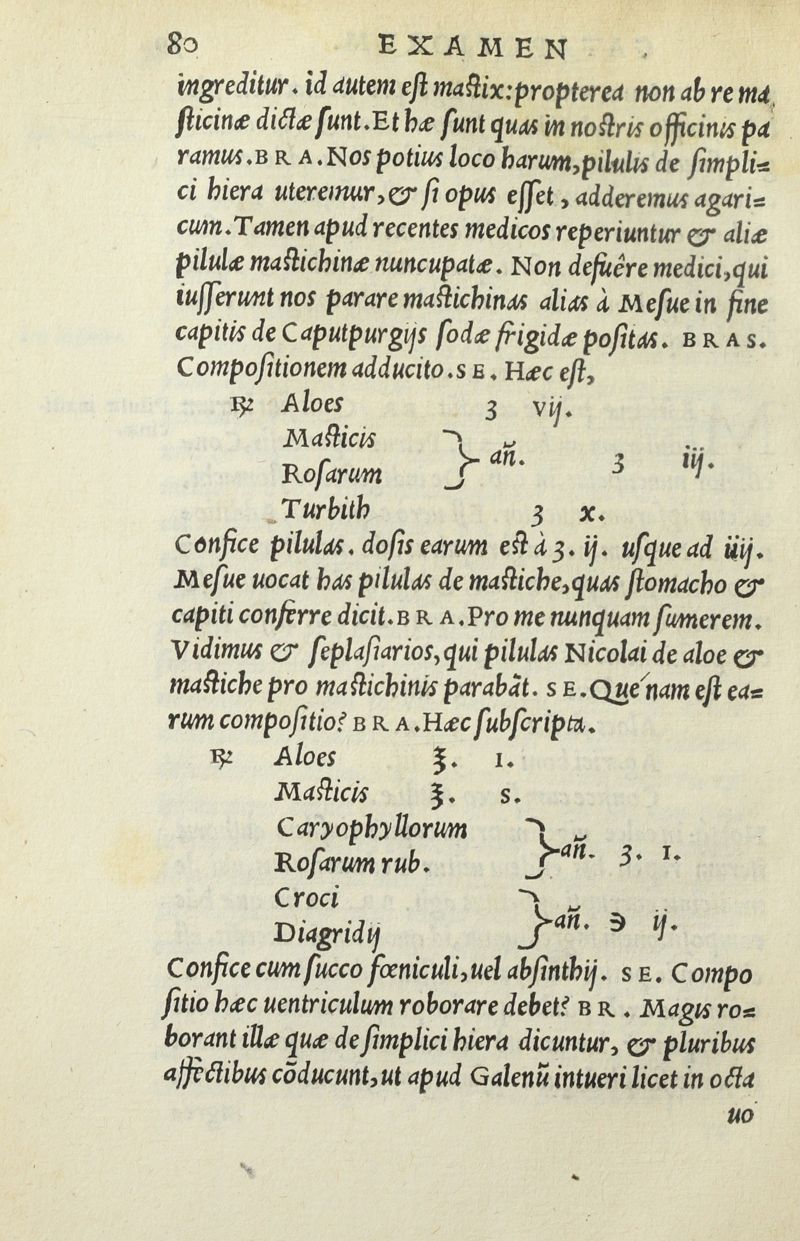 80 EXAMEN
ingreditur. id autem eſt maſtix:propterea non ab re ma
ſticinæ dictæ ſunt.Et hæ ſunt quas in noſtris officinis pa
ramus.BRA.Nos potius loco harum,pilulis de ſimpli=
ci hiera uteremur,& ſi opus eſſet, adderemus agari=
cum.Tamen apud recentes medicos reperiuntur & aliæ
pilulæ maſtichinæ nuncupatæ. Non defuêre medici,qui
iuſſerunt nos parare maſtichinas alias à Meſue in fine
capitis de Caputpurgijs ſodæ frigidæ poſitas. BRAS.
Compoſitionem adducito.SE. Hæc eſt,
℞ Aloes ʒ vij.
Maſticis
Roſarum } an̄. ʒ iij.
Turbith ʒ x.
Confice pilulas. doſis earum eſt à ʒ. ij. uſque ad iiij.
Meſue uocat has pilulas de maſtiche,quas ſtomacho &
capiti conferre dicit.BRA.Pro me nunquam ſumerem.
Vidimus & ſeplaſiarios,qui pilulas Nicolai de aloe &
maſtiche pro maſtichinis parabãt. SE.Quę nam eſt ea=
rum compoſitio? BRA.Hæc ſubſcripta.
℞ Aloes ℥. I.
Maſticis ℥. s.
Caryophyllorum
Roſarum rub. } an̄. ʒ. I.
Croci
Diagridij } an̄. ℈ ij.
Confice cum ſucco fœniculi,uel abſinthij. SE. Compo
ſitio hæc uentriculum roborare debet? BR. Magis ro=
borant illæ quæ de ſimplici hiera dicuntur, & pluribus
affectibus cõducunt,ut apud Galenũ intueri licet in octa
uo